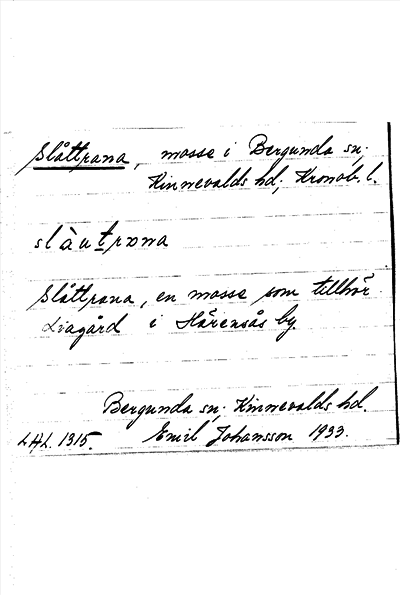 Slåttrana, mosse i Bergunda sn;
Kinnevalds hd; Kronob. l.
slàutrɒna
Slåttrana, en mosse som tillhör
Liagård i Härensås by.
Bergunda sn; Kinnevalds hd.
LHL. 1315. Emil Johansson 1933.